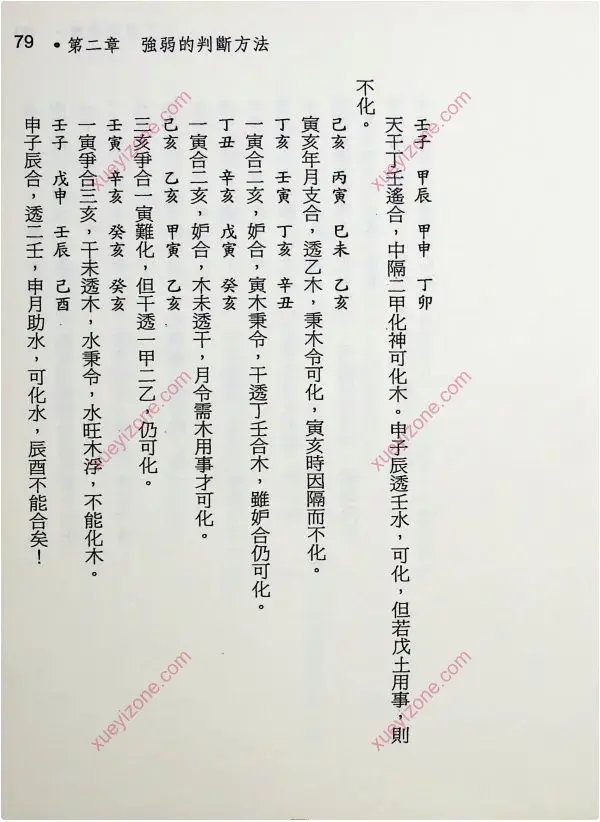 79 •第二章 強弱的判斷方法
壬子 甲辰 甲申 丁卯
天干丁壬遙合，中隔二甲化神可化木。申子辰透壬水，可化，但若戊土用事，則
不化。
己亥 丙寅 巳未 乙亥
寅亥年月支合，透乙木，秉木令可化，寅亥時因隔而不化。
丁亥 壬寅 丁亥 辛丑
一寅合二亥，妒合，寅木秉令，干透丁壬合木，雖妒合仍可化。
丁丑 辛亥 戊寅 癸亥
一寅合二亥，妒合，木未透干，月令需木用事才可化。
己亥 乙亥 甲寅 乙亥
三亥爭合一寅難化，但干透一甲二乙，仍可化。
壬寅 辛亥 癸亥 癸亥
一寅爭合三亥，干未透木，水秉令，水旺木浮，不能化木。
壬子 戊申 壬辰 己酉
申子辰合，透二壬，申月助水，可化水，辰酉不能合矣！
xueyizone.com
xueyizone.com
xueyizone.com
xueyizone.com
xueyizone.com
xueyizone.com